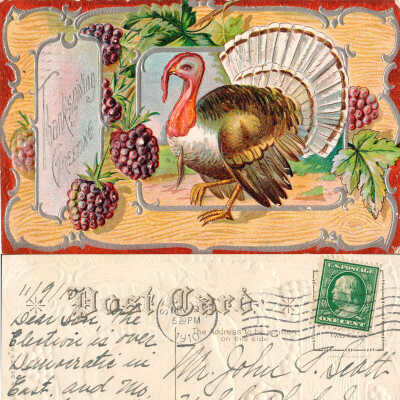 Thanksgiving
Greeting
Post Card
11/9/10
5 PM
1910
The address to be written
on this side
U.S. POSTAGE
ONE CENT
Dear Son The
Election is over
Democratic in
East. and Mo.
Mr. John T. Scott